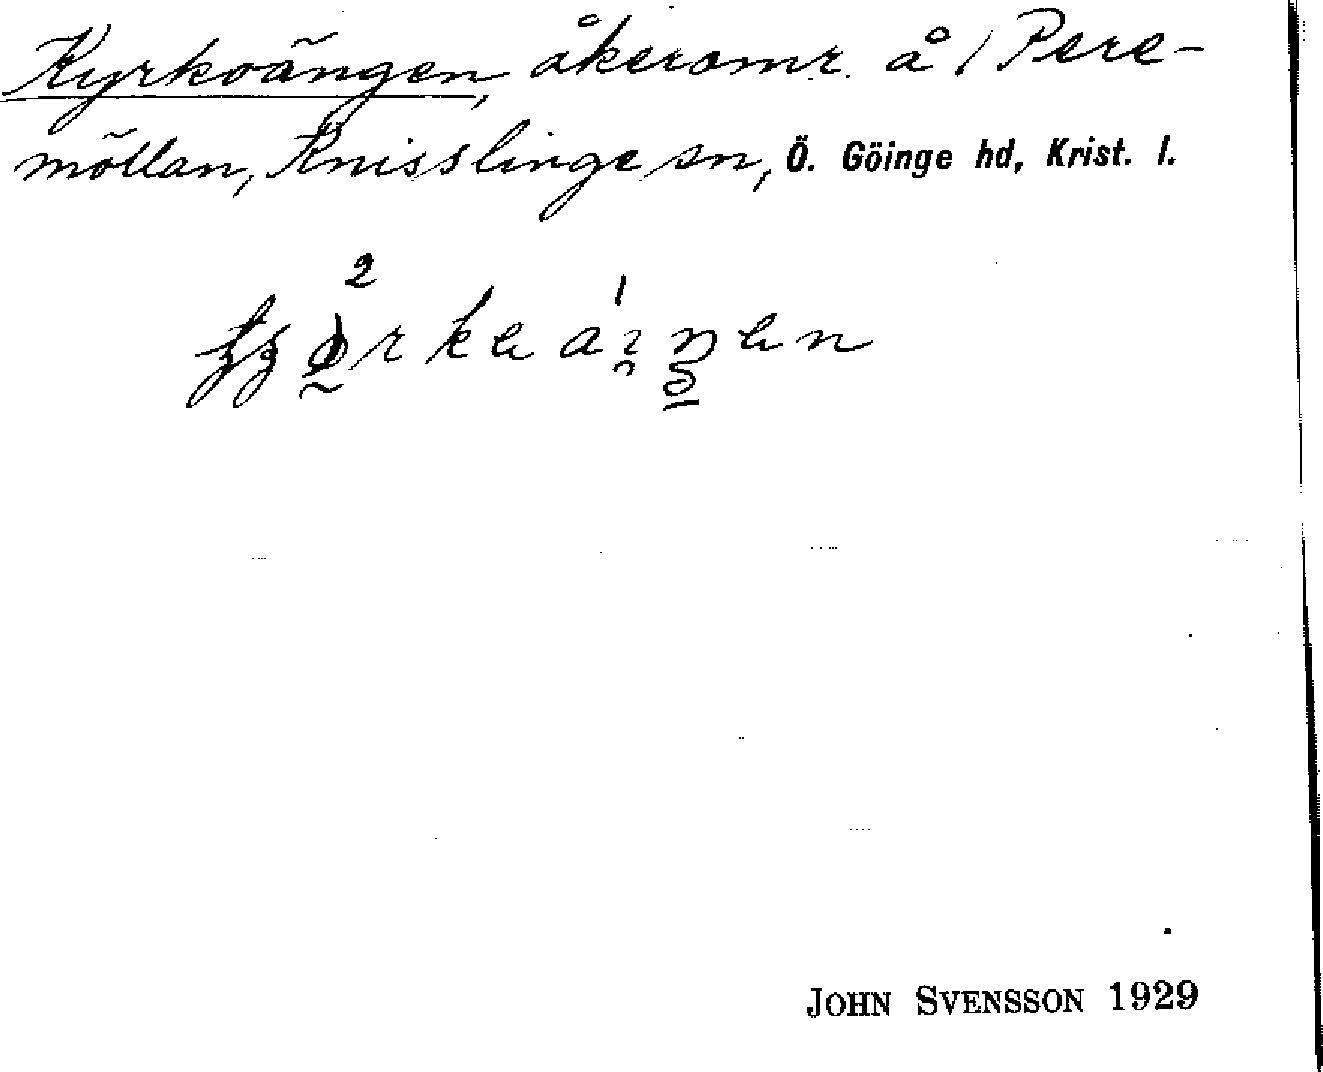 Kyrkoängen, åkeromr. å / Pere-
möllan, Knisslinge sn, Ö. Göinge hd, Krist. l.
JOHN SVENSSON 1929